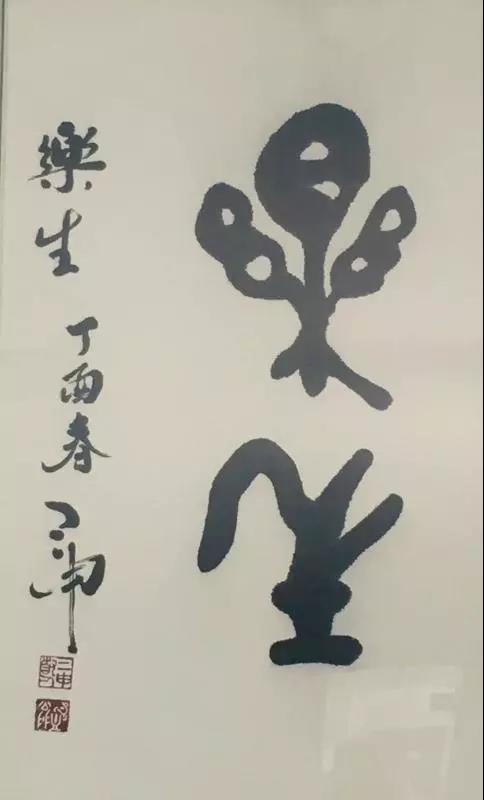 樂生
樂生 丁酉春